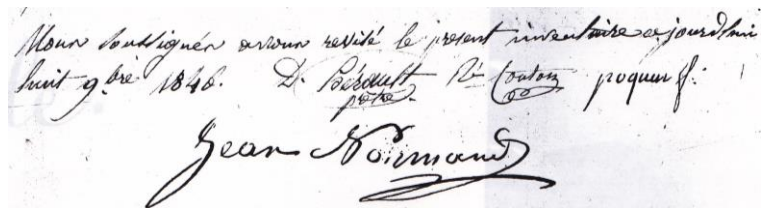 Nous soussignés avons revisé le present inventaire ce jourd'hui
huit 9.bre 1848. D. Bérault R.n Couton poquer f:
prêtre.
Jean Normand